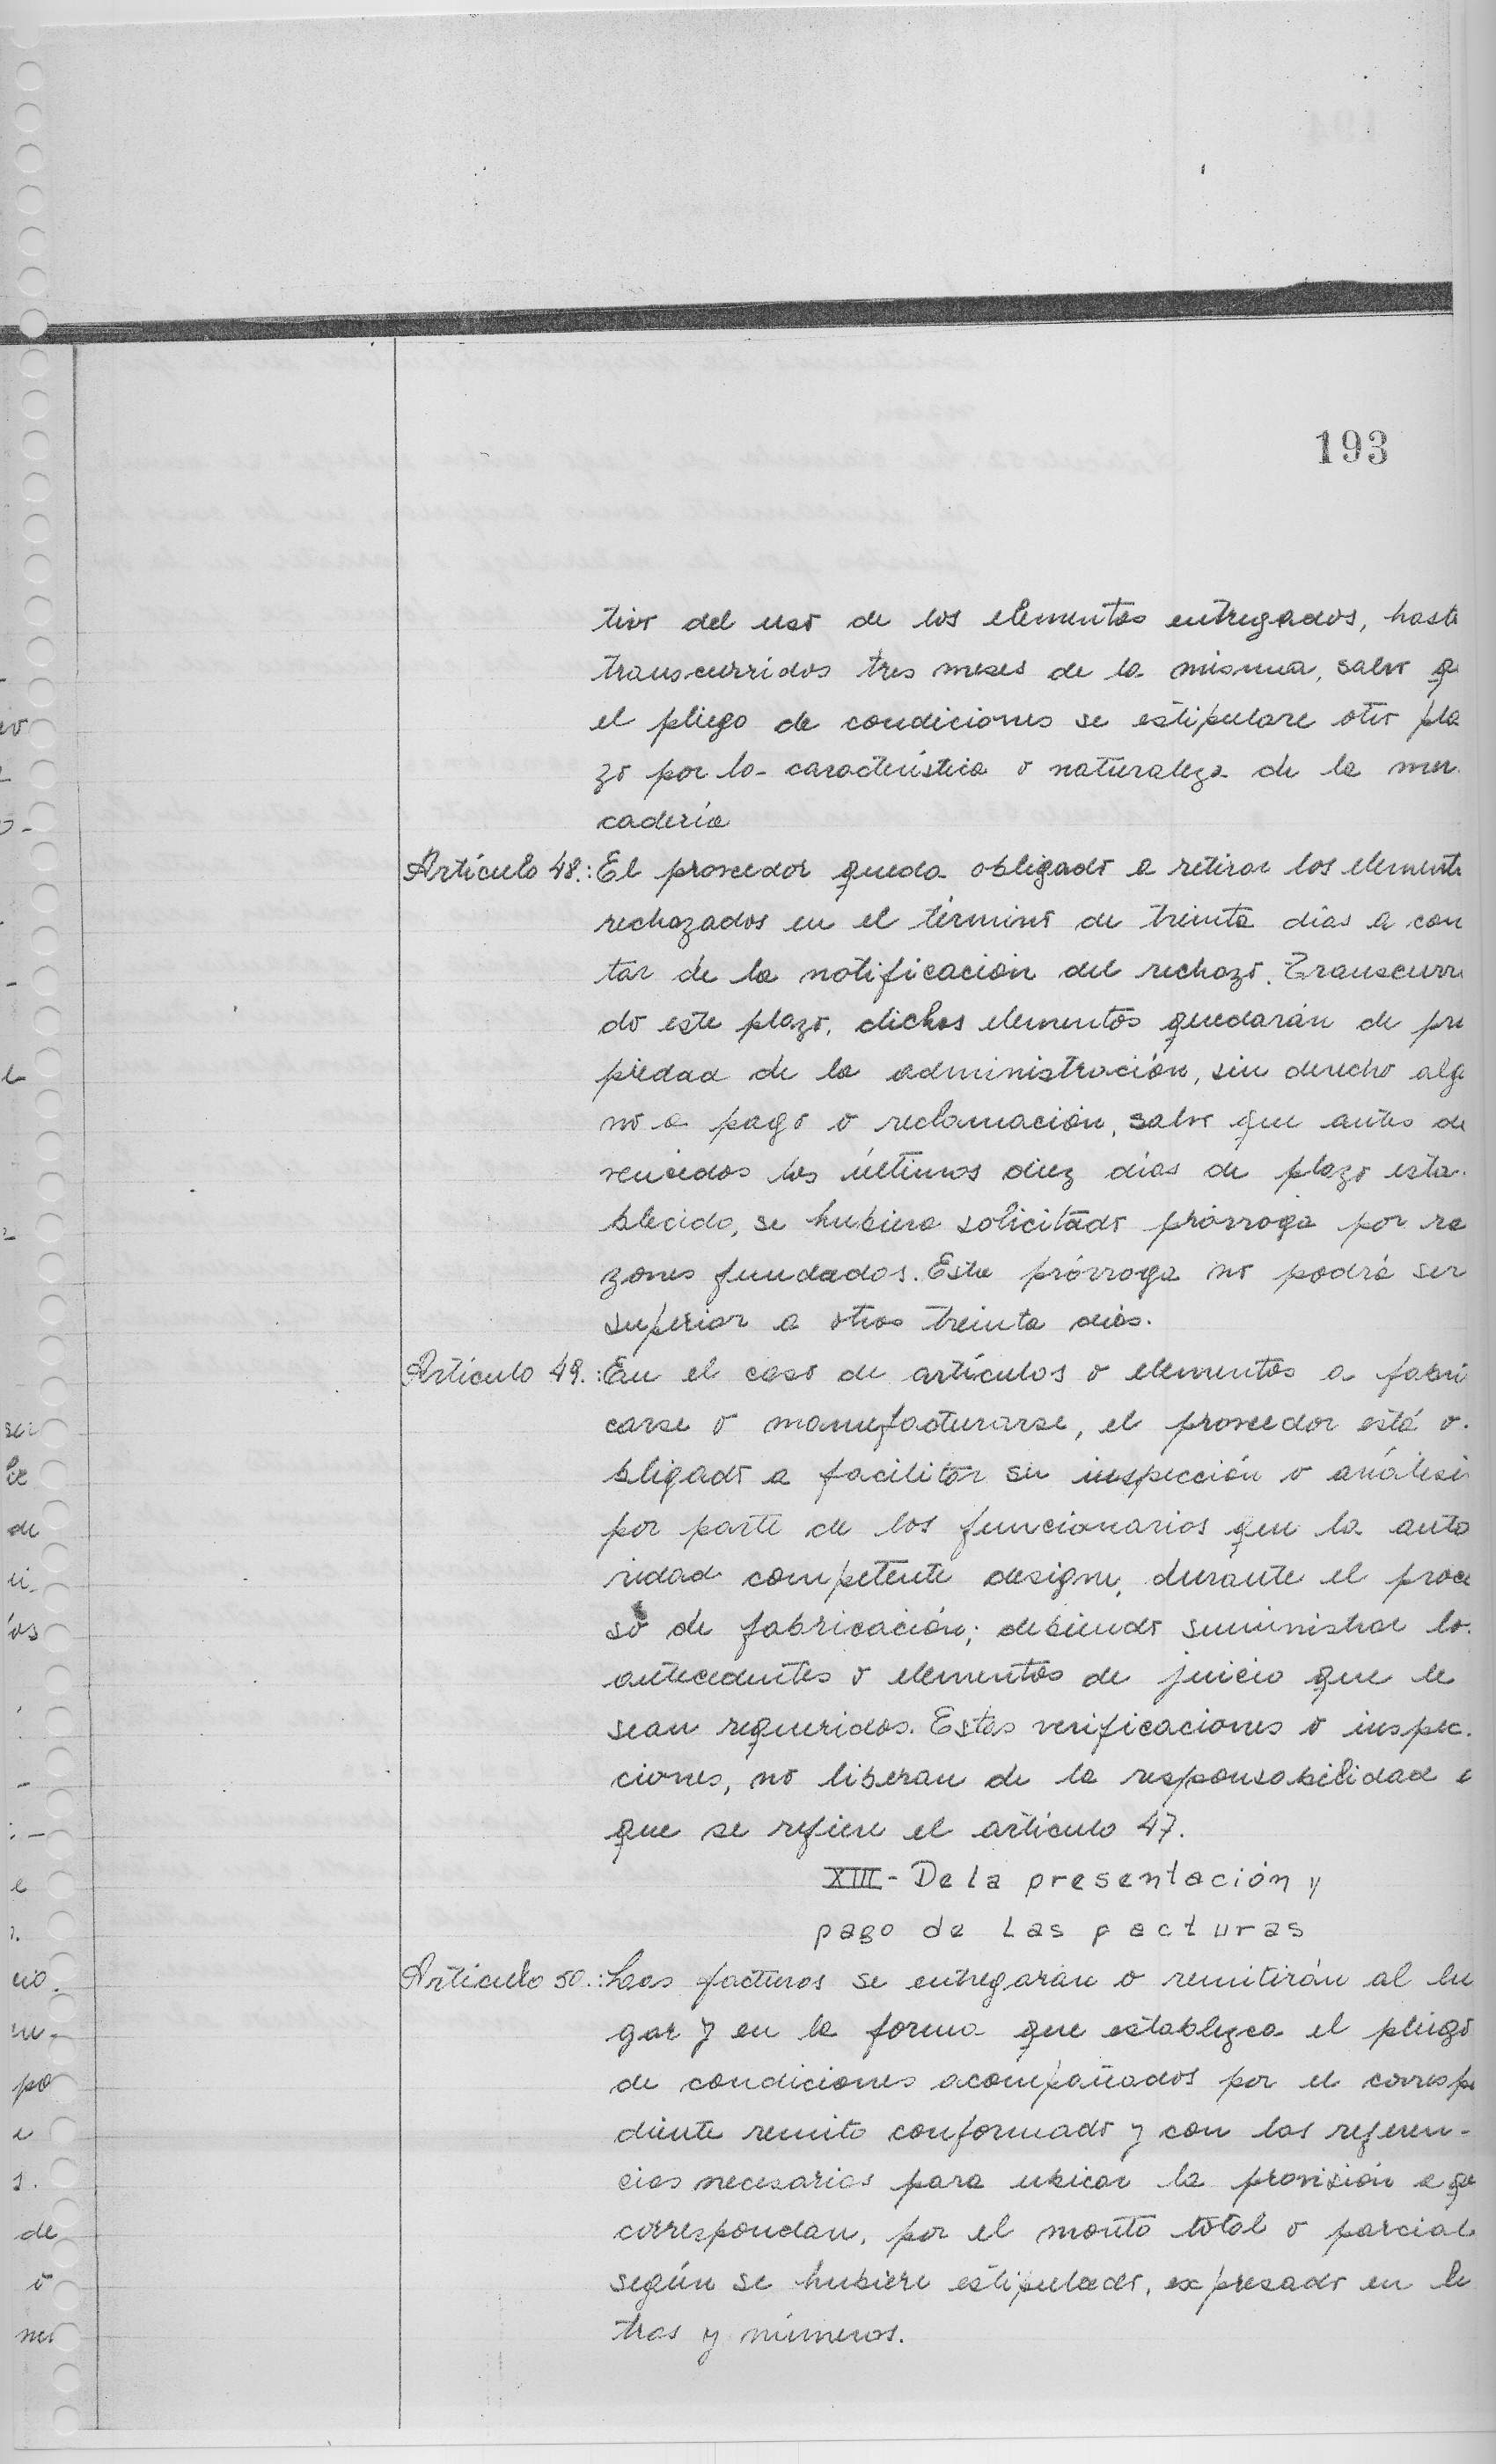 193
tivo del uso de los elementos entregados, hasta
transcurridos tres meses de la misma, salvo q
el pliego de condiciones se estipulare otro pla
zo por la característica o naturaleza de la mer
cadería
Artículo 48.: El proveedor queda obligado a retirar los elemento
rechazados en el término de treinta días a con
tar de la notificación del rechazo. Transcurri
do este plazo, dichos elementos quedarán de pro
piedad de la administración, sin derecho algu
no a pago o reclamación, salvo que antes de
vencidos los últimos diez días de plazo esta-
blecido, se hubiera solicitado prórroga por ra
zones fundados. Esta prórroga no podrá ser
superior a otros treinta días.
Artículo 49.: En el caso de artículos o elementos a fabri
carse o manufacturarse, el proveedor está o-
bligado a facilitar su inspección o análisi
por parte de los funcionarios que la auto
ridad competente designe, durante el proce
so de fabricación; debiendo suministrar lo
antecedentes o elementos de juicio que le
sean requeridos. Estas verificaciones o inspec-
ciones, no liberan de la responsabilidad a
que se refiere el artículo 47.
XIII - De la presentación y
pago de las facturas
Artículo 50.: Las facturas se entregarán o remitirán al lu
gar y en la forma que establezca el pliego
de condiciones acompañados por el correspo
diente remito conformado y con las referen-
cias necesarias para ubicar la provisión a qu
correspondan, por el monto total o parcial
según se hubiere estipulado, expresado en le
tras y números.